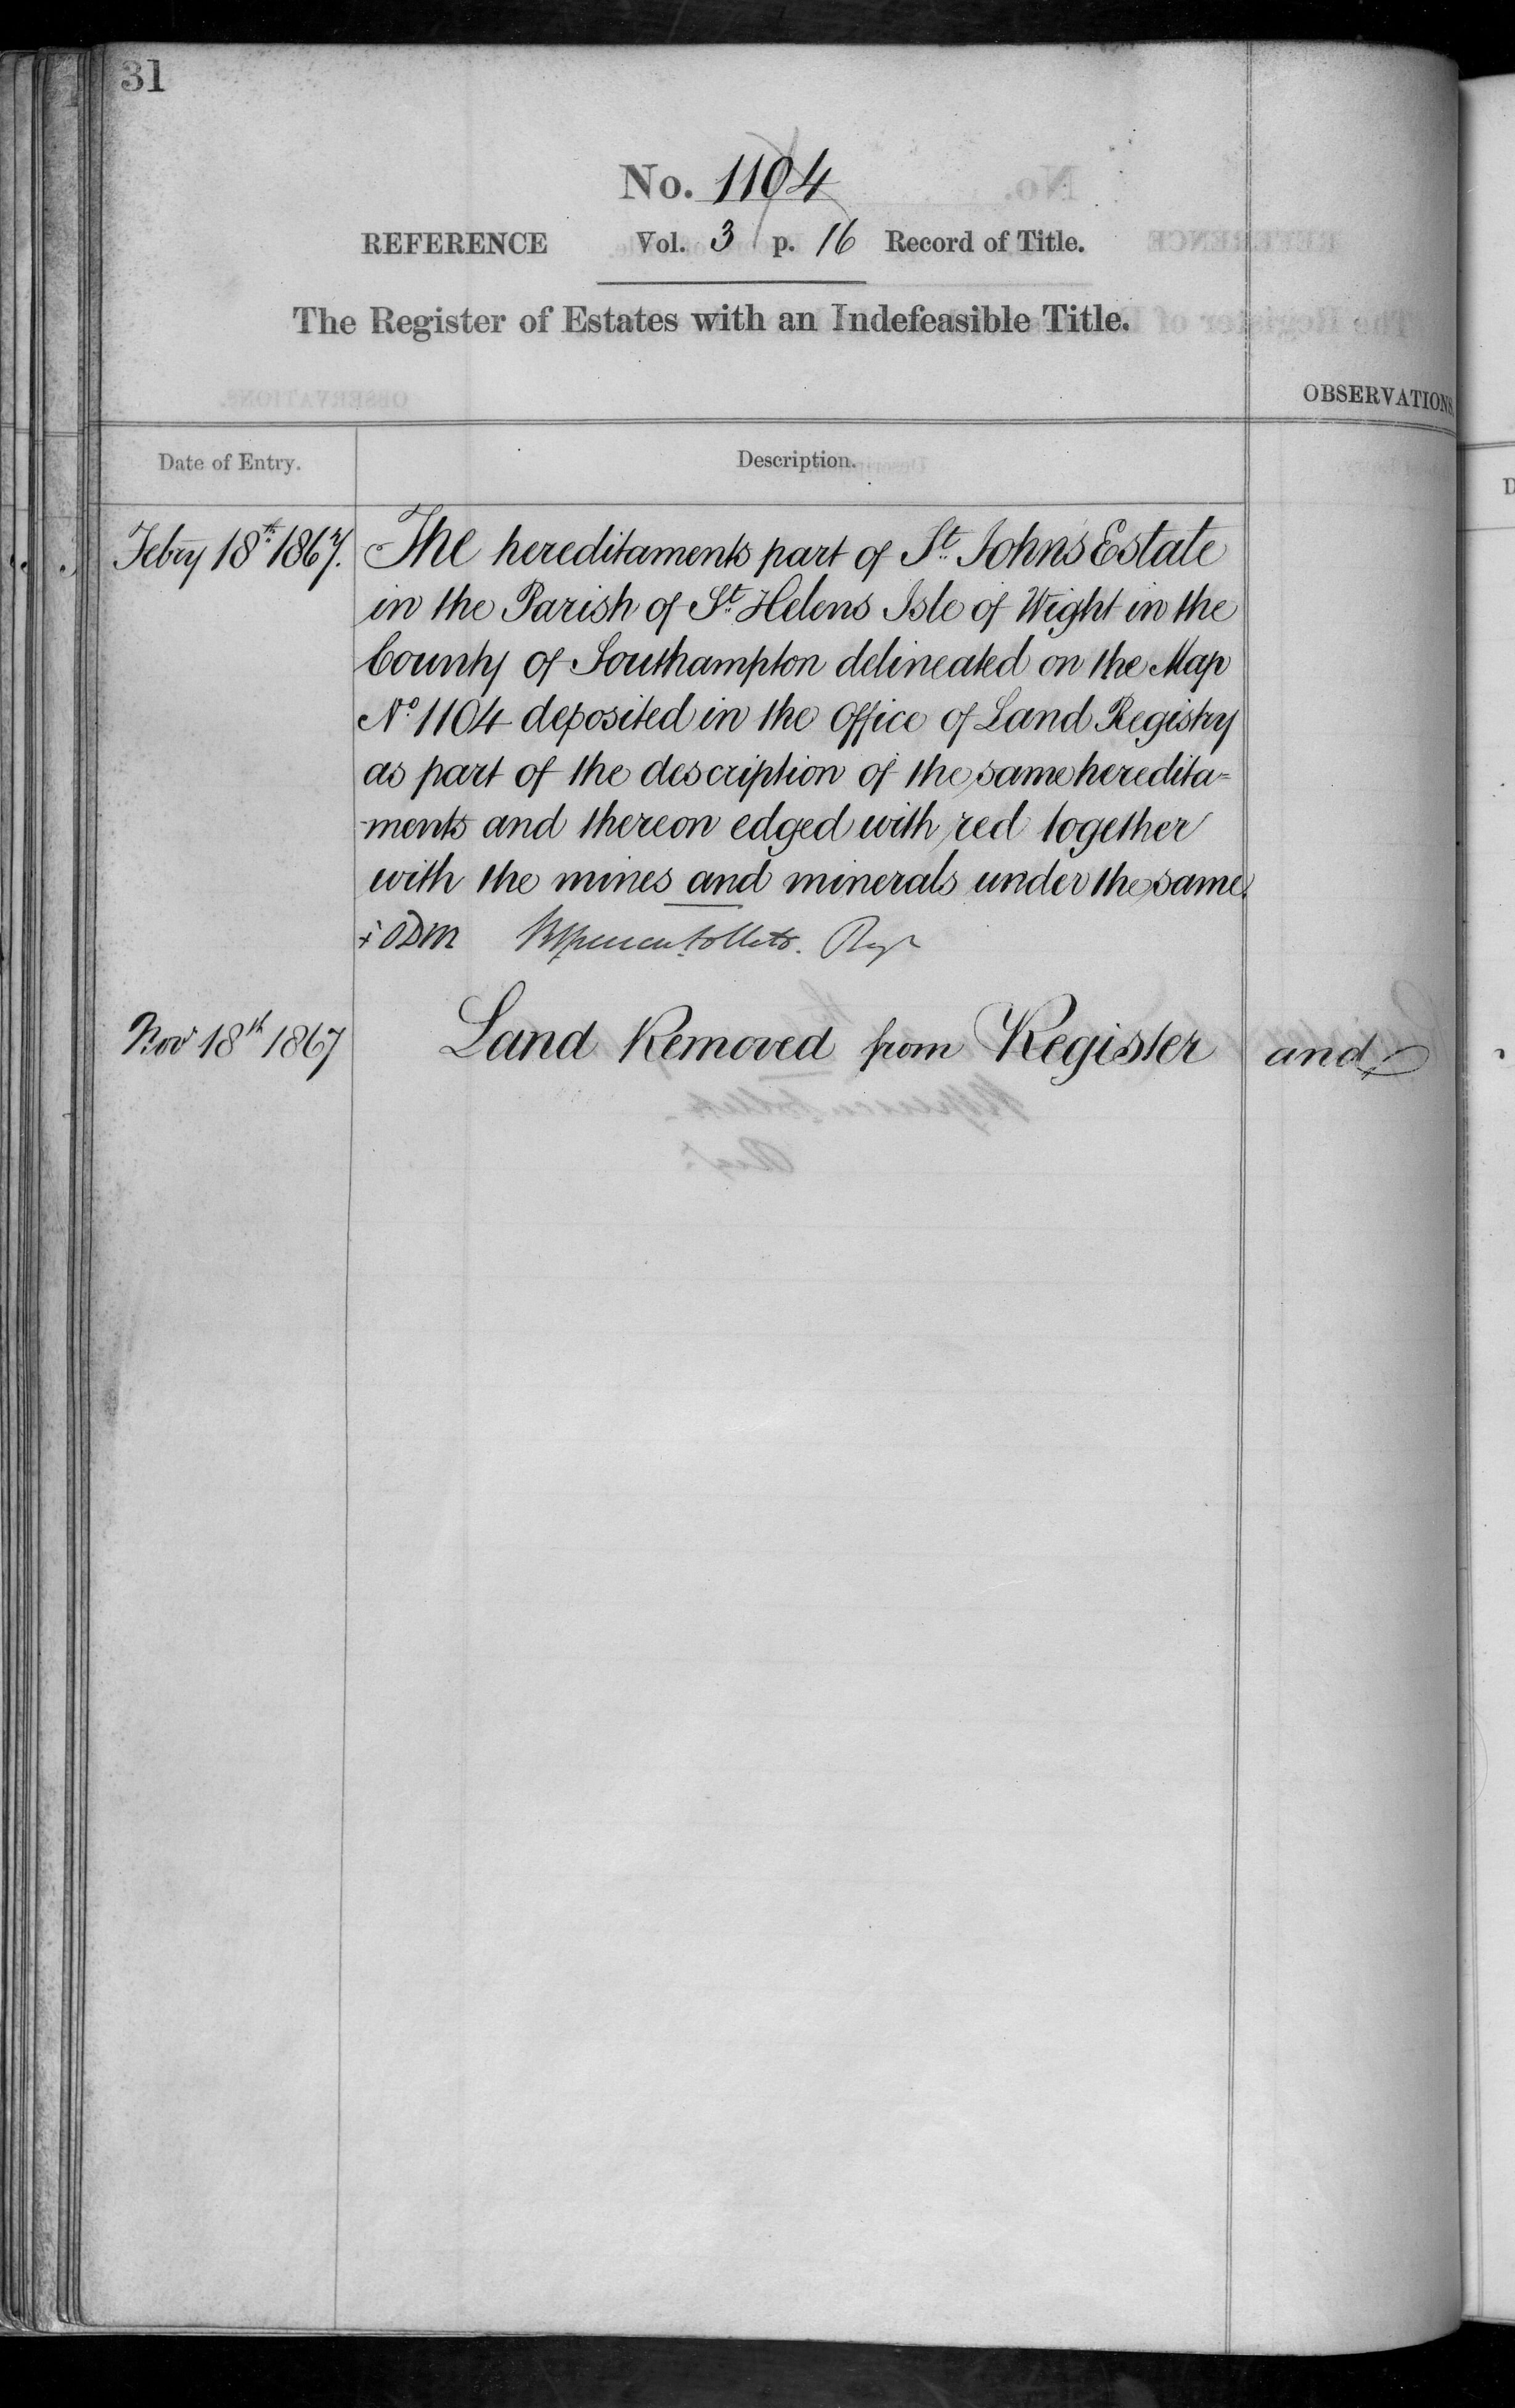 31
No. 1104
REFERENCE Vol. 3 p. 16 Record of Title.
The Register of Estates with an Indefeasible Title.
OBSERVATIONS.
Date of Entry.
Description.
Febry 18th 1867. The hereditaments part of St. Johns Estate
in the Parish of St. Helens Isle of Wight in the
County of Southampton delineated on the Map
No. 1104 deposited in the Office of Land Registry
as part of the description of the same heredita=
-ments and thereon edged with red together
with the mines and minerals under the same.
Regr
Nov 18th 1867 Land Removed from Register and